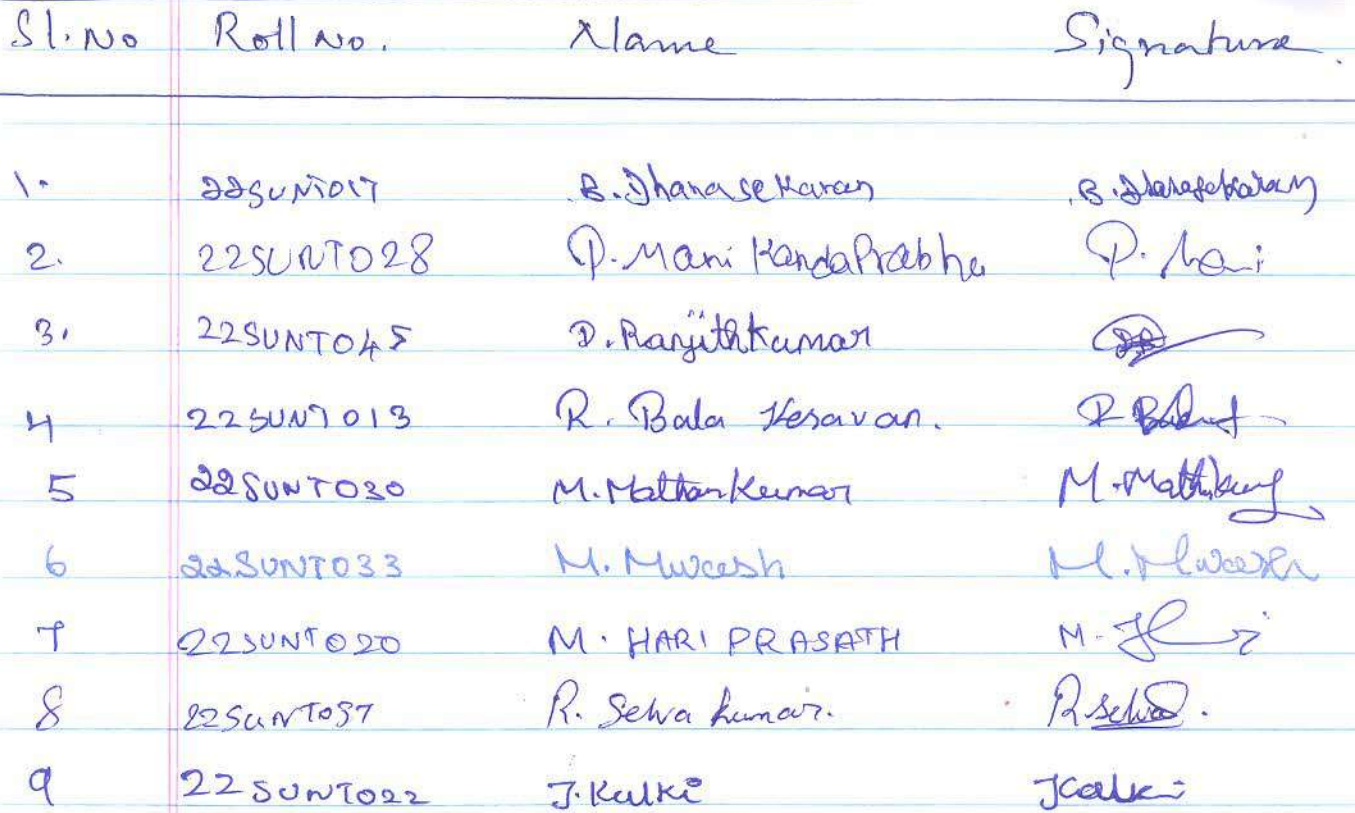 Sl. No Roll No. Name Signature.
1. 22SUNT017 B. Dhanasekaran B. Dhanasekaran
2. 22SUNT028 P. Mani KandaPrabhu P. Mani
3. 22SUNT045 D. Ranjithkumar
4 22SUNT013 R. Bala Kesavan. R
5 22SUNT030 M. MathanKumar M.
6 22SUNT033 M. Mukesh M. Mukesh
7 22SUNT020 M. HARI PRASATH M.
8 22SUNT037 R. Selva kumar. R Selva.
9 22SUNT022 J. Kalki J Kalki